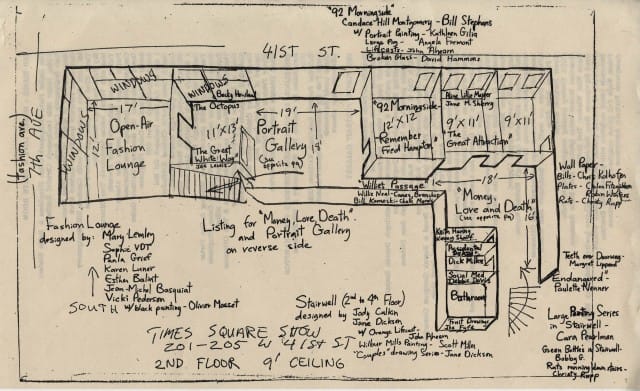 "92 Morningside"
Candace Hill Montgomery - Bill Stephens
w/ Portrait Painting - Kathleen Gilia
Large Pig - Angela Fremont
Lifecasts - John Ahearn
Broken Glass - David Hammons
41ST ST.
(Fashion ave.)
7th AVE
WINDOWS
WINDOWS
WINDOWS
17'
12'
Open-Air
Fashion
Lounge
Becky Howland
The Octopus
11'x13'
The Great
White Way
Joe Lewis
19'
18'
Portrait
Gallery
(see
opposite pg)
"92 Morningside"
12'x12'
"Remember
Fred Hampton"
Jane M. Sherry
9'x11'
9'x11'
"The
Great Attraction"
Willet Passage
Willie Neal -
Bill Komoski -
18'
16'
"Money,
Love and Death"
(see opposite pg)
Keith Haring
Kenny Scharf
Dick Miller
Social Med
Bathroom
Fruit Drawing
Wall Paper -
Bills - Chris Kolhofer
Plates -
Rats - Christy Rupp
Teeth over Doorway -
Margret Lippard
"Endangered" -
Paulette Nenner
Large Painting Series
in "Stairwell" -
Cara Perlman
Green Bottles in Stairwell -
Bobby G.
Rats running down stairs -
Christy Rupp
Listing for "Money, Love, Death"
and Portrait Gallery
on reverse side
Fashion Lounge
designed by: Mary Lemley
Sophie VDT
Paula Grief
Karen Luner
Esther Balint
Jean-Michel Basquiat
Vicki Pedersen
w/ black painting - Olivier Mosset
SOUTH
Stairwell (2nd to 4th Floor)
designed by Jody Culkin
Jane Dickson
w/ Orange Lifecast - John Ahearn
Wilbur Mills Painting - Scott Miller
"Couples" drawing Series - Jane Dickson
TIMES SQUARE SHOW
201-205 W 41ST ST
2ND FLOOR 9' CEILING